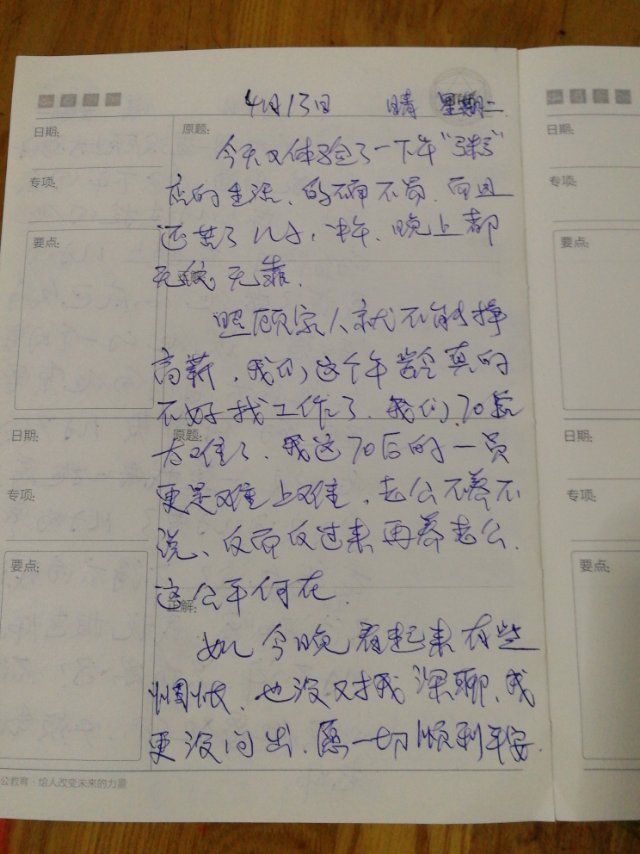 4月13日 晴 星期二
日期:
原题:
日期:
今天又体验了一下午“粥”
专项:
专项:
店的生活、的确不易、而且
要点:
要点:
中午、晚上都
无靠.
照顾家人就不能挣
高薪,我们这个年龄真的
不好找工作了、我们70后
日期:
原题:
日期:
太难了、我这70后的一员
专项:
专项:
更是难上难,老公不养不
说、反而反过来再养老公.
要点:
要点:
这公平何在.
今晚看起来有些
惆怅、也没又找我深聊、我
更没问出、愿一切顺利平安.
公教育·给人改变未来的力量